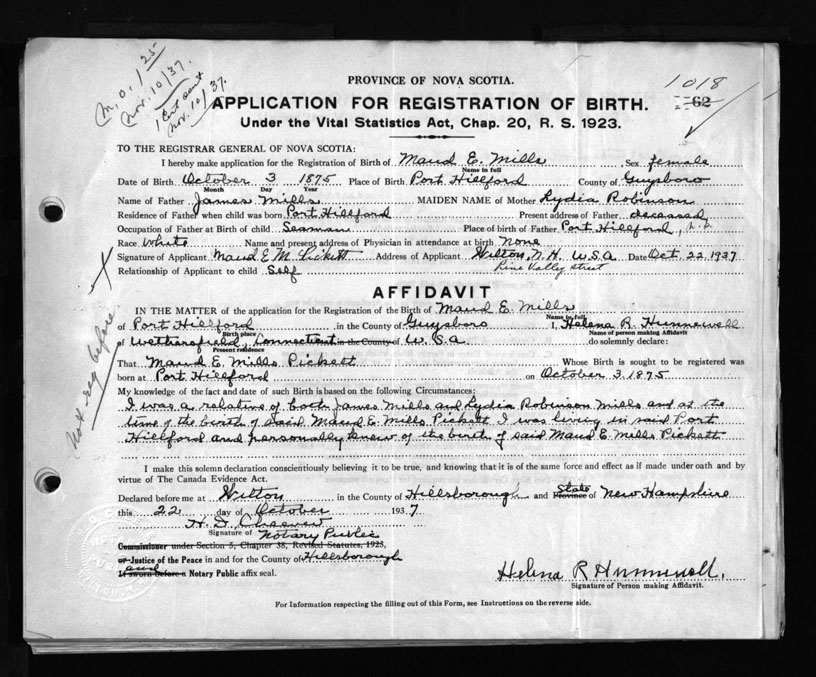 M.O. 1/25
Nov. 10/37.
1 Cert sent
Nov. 10/37.
PROVINCE OF NOVA SCOTIA.
1018
62
APPLICATION FOR REGISTRATION OF BIRTH.
Under the Vital Statistics Act, Chap. 20, R. S. 1923.
TO THE REGISTRAR GENERAL OF NOVA SCOTIA:
I hereby make application for the Registration of Birth of Maud E. Mills Sex female
Name in full
Date of Birth October 3 1875 Place of Birth Port Hillford County of Guysboro
Month Day Year
Name of Father James Mills MAIDEN NAME of Mother Lydia Robinson
Residence of Father when child was born Port Hillford Present address of Father deceased
Occupation of Father at Birth of child Seaman Place of birth of Father Port Hillford, N.S.
Race White Name and present address of Physician in attendance at birth None
Signature of Applicant Maud E. M. Pickett Address of Applicant Wilton, N.H. U.S.A. Date Oct. 22 1937
Pine Valley street
Relationship of Applicant to child Self
AFFIDAVIT
IN THE MATTER of the application for the Registration of the Birth of Maud E. Mills
Name in full
of Port Hillford in the County of Guysboro I, Helena R. Hunnewell
Birth place Name of person making Affidavit
of Wethersfield, Connecticut in the County of U.S.A. do solemnly declare:
Present residence
That Maud E. Mills Pickett Whose Birth is sought to be registered was
born at Port Hillford on October 3, 1875
My knowledge of the fact and date of such Birth is based on the following Circumstances:
I was a relative of both James Mills and Lydia Robinson Mills and at the
time of the birth of said Maud E. Mills Pickett I was living in said Port
Hillford and personally knew of the birth of said Maud E. Mills Pickett
not reg before
I make this solemn declaration conscientiously believing it to be true, and knowing that it is of the same force and effect as if made under oath and by
virtue of The Canada Evidence Act.
Declared before me at Wilton in the County of Hillsborough and State Province of New Hampshire
this 22 day of October 1937
H. D. Cheever
Signature of Notary Public
Commissioner under Section 5, Chapter 38, Revised Statutes, 1923,
or Justice of the Peace in and for the County of Hillsborough
and
If sworn before a Notary Public affix seal.
Helena R Hunnewell.
Signature of Person making Affidavit.
For Information respecting the filling out of this Form, see Instructions on the reverse side.